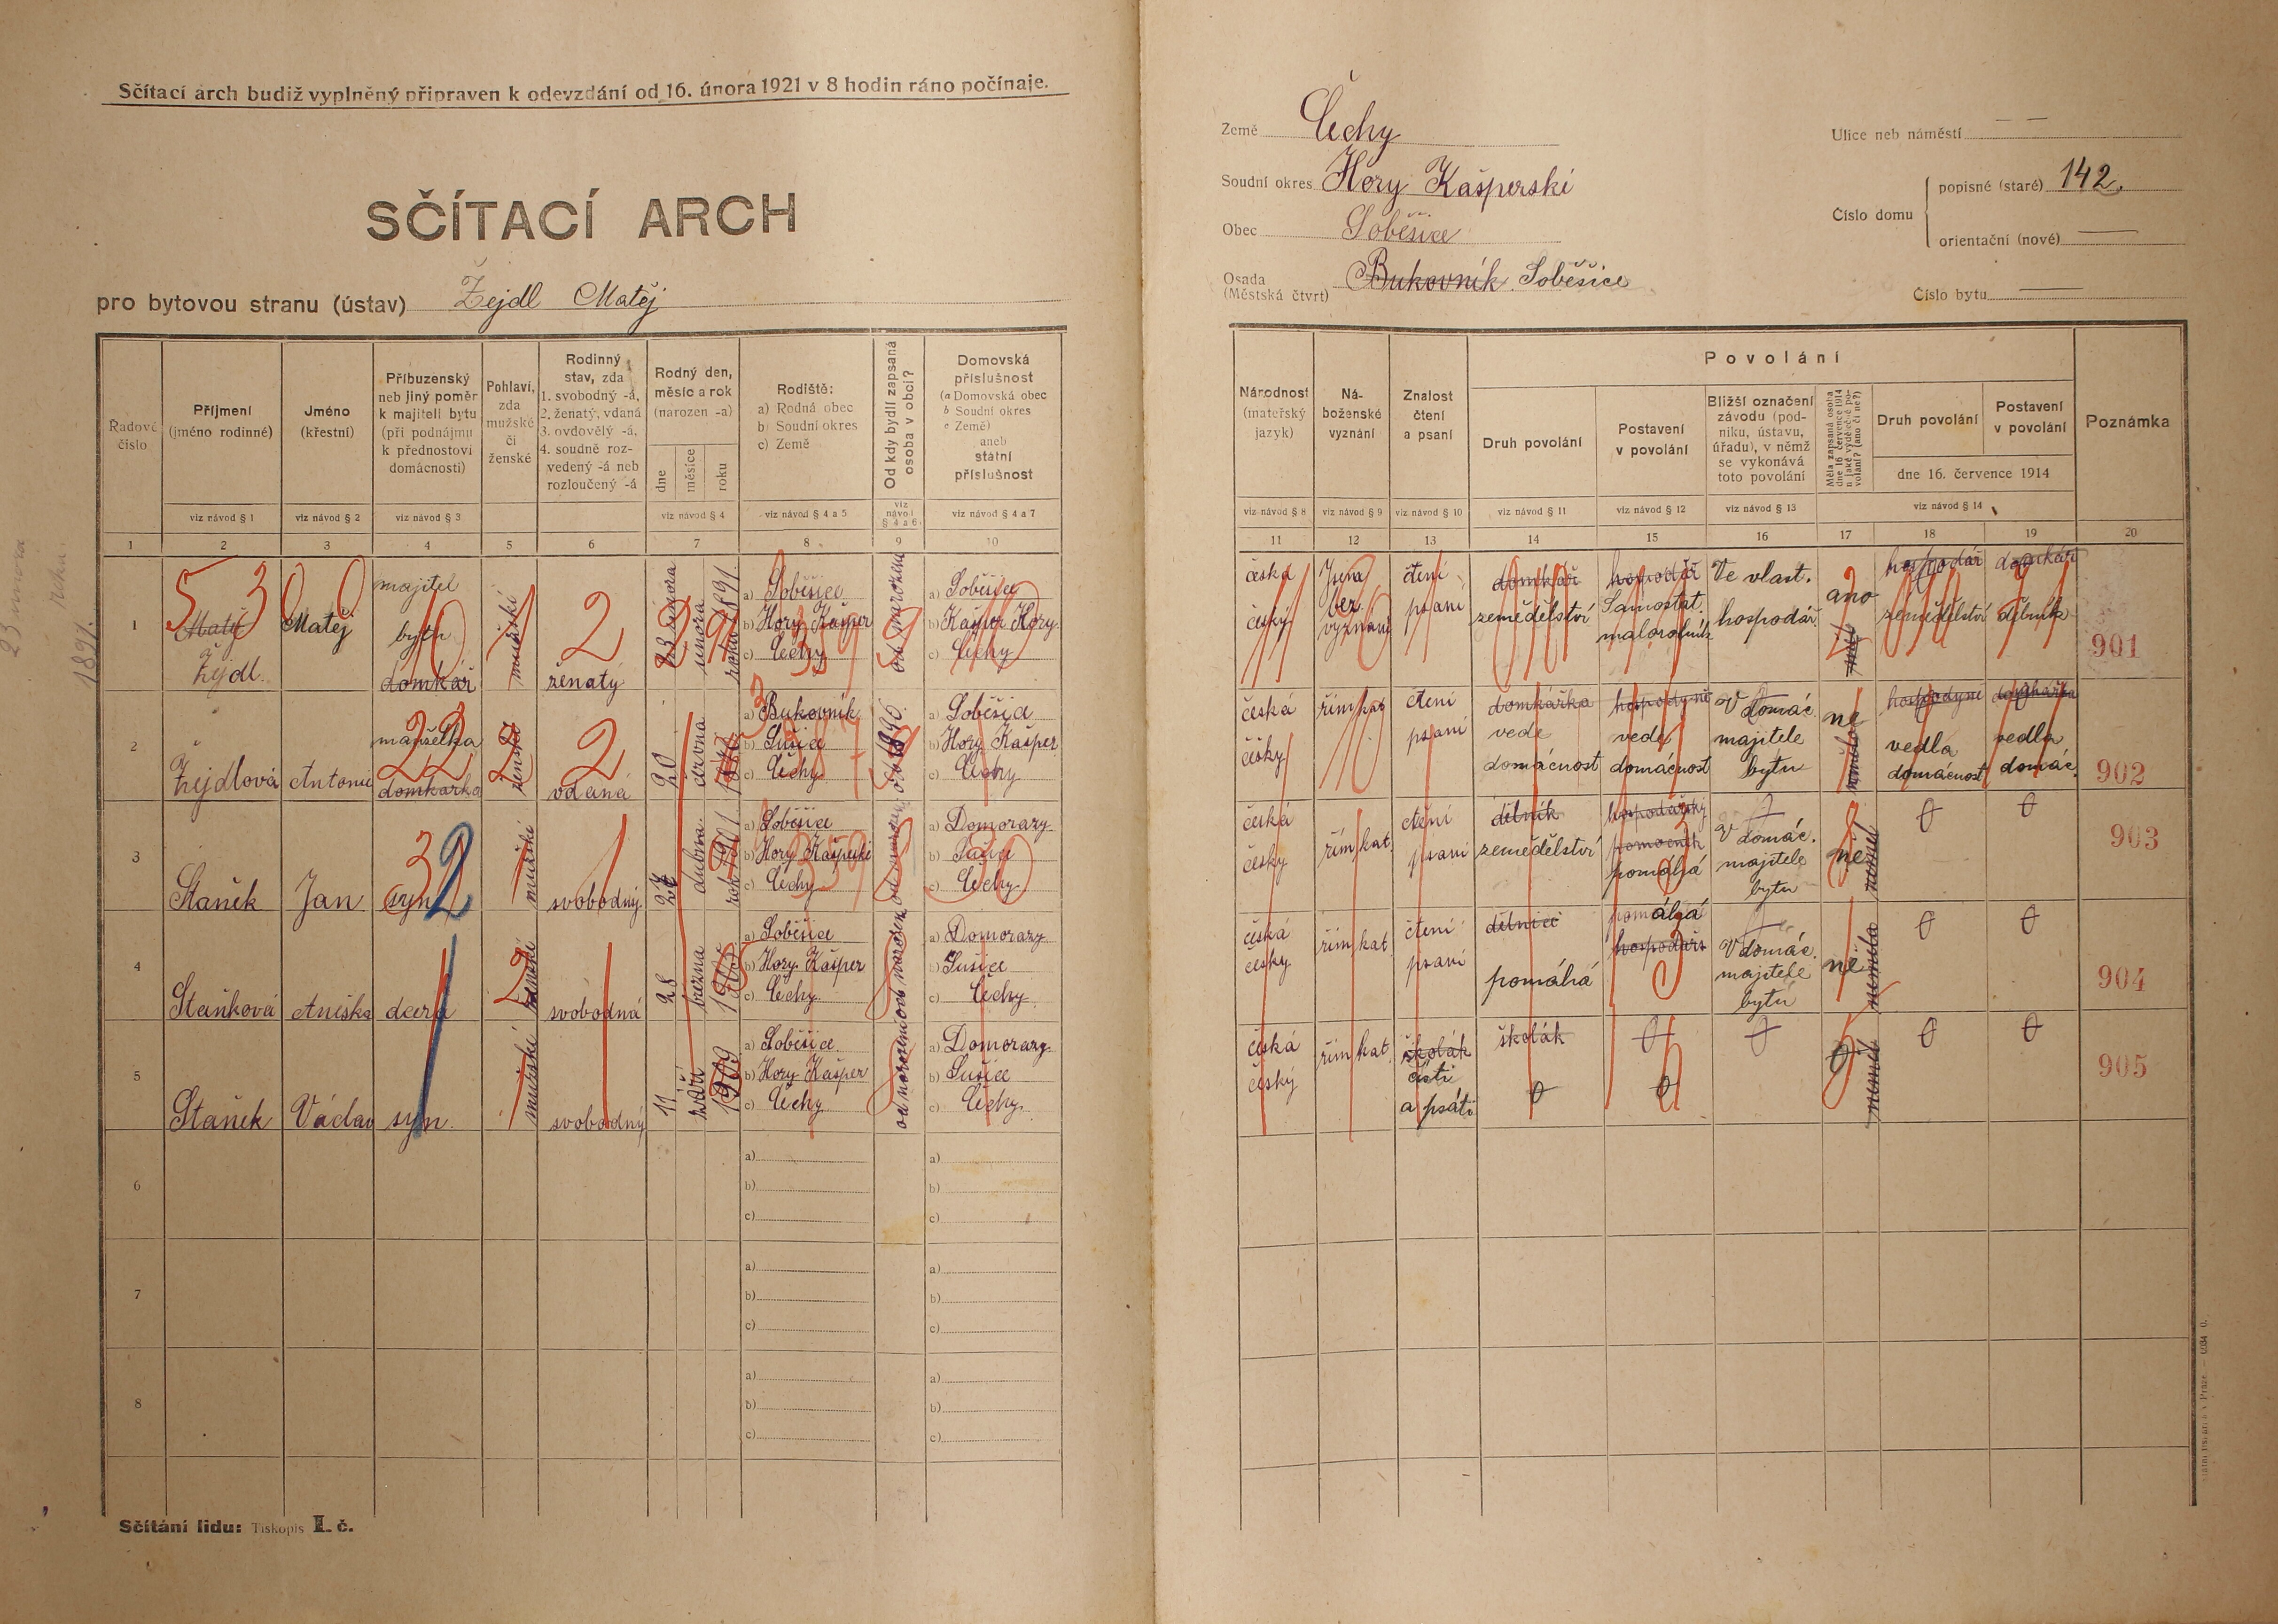 Sčítací arch budiž vyplněný připraven k odevzdání od 16. února 1921 v 8 hodin ráno počínaje.
SČÍTACÍ ARCH
pro bytovou stranu (ústav) Žejdl Matěj
Země Čechy
Soudní okres Hory Kašperski
Obec Soběšice
Osada (Městská čtvrt) Bukovník Soběšice
Ulice neb náměstí — —
Číslo domu
popisné (staré) 142.
orientační (nové) —
Číslo bytu —
Řadové číslo
Příjmení (jméno rodinné)
Jméno (křestní)
Příbuzenský neb jiný poměr k majiteli bytu (při podnájmu k přednostovi domácnosti)
Pohlaví, zda mužské či ženské
Rodinný stav, zda 1. svobodný -á, 2. ženatý, vdaná 3. ovdovělý -á, 4. soudně rozvedený -á neb rozloučený -á
Rodný den, měsíc a rok (narozen -a)
dne měsíce roku
Rodiště: a) Rodná obec b) Soudní okres c) Země
Od kdy bydlí zapsaná osoba v obci?
Domovská příslušnost (a Domovská obec b Soudní okres c Země) aneb státní příslušnost
viz návod § 1 viz návod § 2 viz návod § 3 viz návod § 4 viz návod § 4 a 5 viz návod § 4 a 6 viz návod § 4 a 7
1 2 3 4 5 6 7 8 9 10
Národnost (mateřský jazyk)
Náboženské vyznání
Znalost čtení a psaní
Povolání
Druh povolání
Postavení v povolání
Bližší označení závodu (podniku, ústavu, úřadu), v němž se vykonává toto povolání
Měla zapsaná osoba dne 16. července 1914 nějaké výdělečné povolání? (ano či ne?)
Druh povolání
Postavení v povolání
dne 16. července 1914
Poznámka
viz návod § 8 viz návod § 9 viz návod § 10 viz návod § 11 viz návod § 12 viz návod § 13 viz návod § 14
11 12 13 14 15 16 17 18 19 20
1 Matěj Žejdl. Matěj majitel bytu domkář mužské 2 ženatý 23 února roku 1891
a) Soběšice b) Hory Kašper c) Čechy
od narození
a) Soběšice b) Kašper Hory. c) Čechy
česká český bez vyznání čtení psaní domkář zemědělství hospodář Samostat. malorolník Ve vlast. hospodář. ano hospodář zemědělství domkář dělník 901
2 Žejdlová Antonie manželka domkářka ženské 2 vdaná 20 června
a) Bukovník b) Sušice c) Čechy
a) Soběšice b) Hory Kašper c) Čechy
česká česky řím kat čtení psaní domkářka vede domácnost hospodyně vede domácnost V domác. majitele bytu ne hospodyně vedla domácnost vedla domác. 902
3 Staněk Jan syn mužské svobodný. dubna rok 1901
a) Soběšice b) Hory Kašperské c) Čechy
a) Domorazy b) Sušice c) Čechy
česká česky řím kat. čtení psaní dělník zemědělství hospodářský pomocník pomáhá V domác. majitele bytu ne 0 0 903
4 Staňková Aniška dcera ženské svobodná 28 března
a) Soběšice b) Hory Kašper c) Čechy
od narození
a) Domorazy b) Sušice c) Čechy
česká česky řím kat. čtení psaní dělnice pomáhá pomáhá V domác. majitele bytu ne neměla 0 0 904
5 Staněk Václav syn. mužské svobodný 11 září 1909
a) Soběšice b) Hory Kašper c) Čechy
od narození
a) Domorazy b) Sušice c) Čechy.
česká český řím kat. školák čísti a psáti školák 0 0 0 0 neměl 0 0 905
6 a) b) c) a) b) c)
7 a) b) c) a) b) c)
8 a) b) c) a) b) c)
Sčítání lidu: Tiskopis I. č.